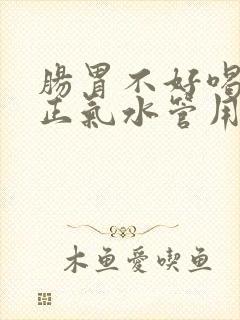 腸胃不好喝
正氣水管用
木鱼愛喫鱼